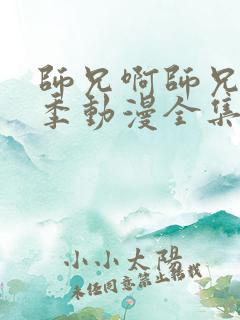 師兄啊師兄
季動漫全集
小小太陽
未經同意禁止轉載